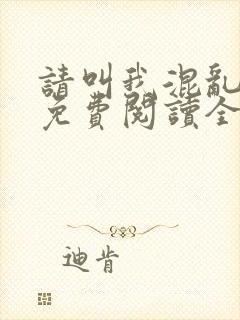 請叫我混亂
免費閱讀全
迪肯